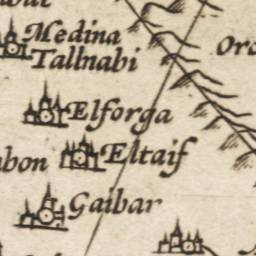 Medina
Tallnabi
Elforga
Eltaif
Gaibar